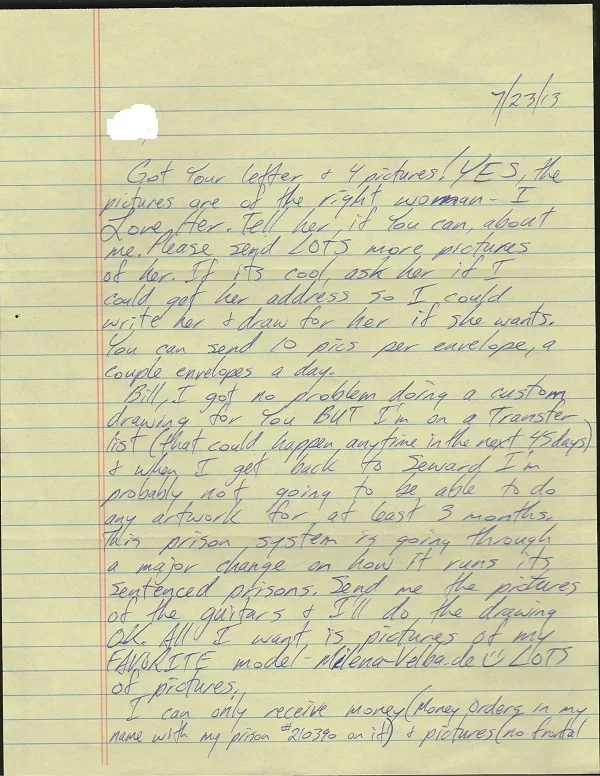 7/23/13
,
Got Your letter & 4 pictures! YES, the
pictures are of the right woman - I
Love Her. Tell her, if You can, about
me. Please send LOTS more pictures
of her. If its cool, ask her if I
could get her address so I could
write her & draw for her if she wants.
You can send 10 pics per envelope, a
couple envelopes a day.
Bill, I got no problem doing a custom
drawing for You BUT I'm on a Transfer
list (that could happen anytime in the next 45 days)
& when I get back to Seward I'm
probably not going to be able to do
any artwork for at least 3 months.
This prison system is going through
a major change on how it runs its
sentenced prisons. Send me the pictures
of the guitars & I'll do the drawing
OK. All I want is pictures of my
FAVORITE model - Milena-Velba.de LOTS
of pictures.
I can only receive money (Money Orders in my
name with my prison #210390 on it) & pictures (no frontal